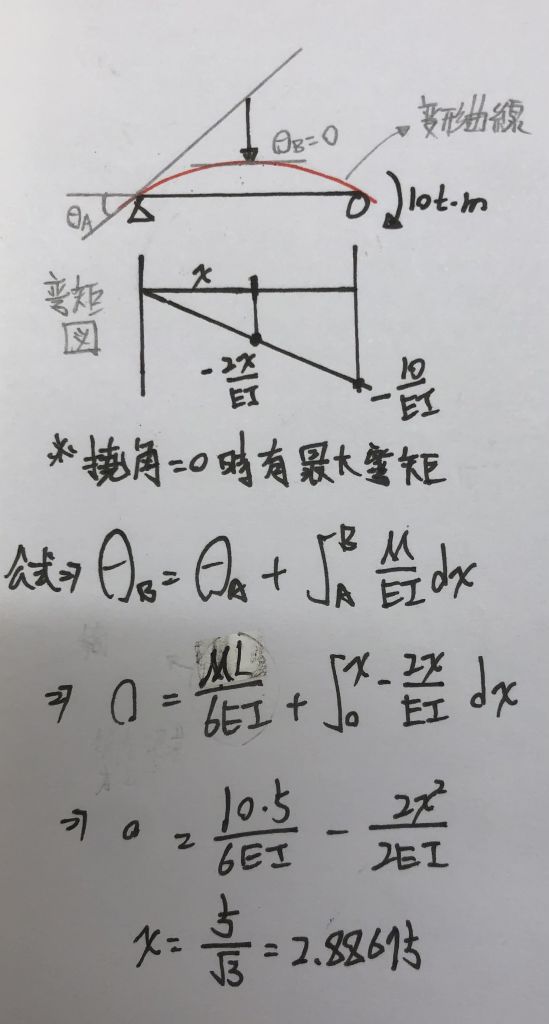 θ_B=0
変形曲線
θ_A
10t·m
x
弯矩
図
-2x/EI
-10/EI
※撓角=0時有最大弯矩
公式⇒ θ_B = θ_A + ∫_A^B M/EI dx
⇒ 0 = ML/6EI + ∫_0^x -2x/EI dx
⇒ 0 = 10·5/6EI - 2x²/2EI
x = 5/√3 = 2.88675